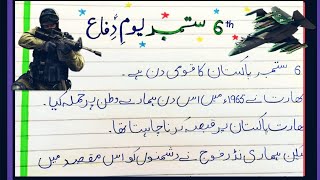 6th ستمبر یومِ دفاع
6 ستمبر پاکستان کا قومی دن ہے۔
بھارت نے 1965ء میں اس دن ہمارے وطن پر حملہ کیا۔
بھارت پاکستان پر قبضہ کرنا چاہتا تھا۔
لیکن ہماری نڈر فوج نے دشمنوں کو اس مقصد میں